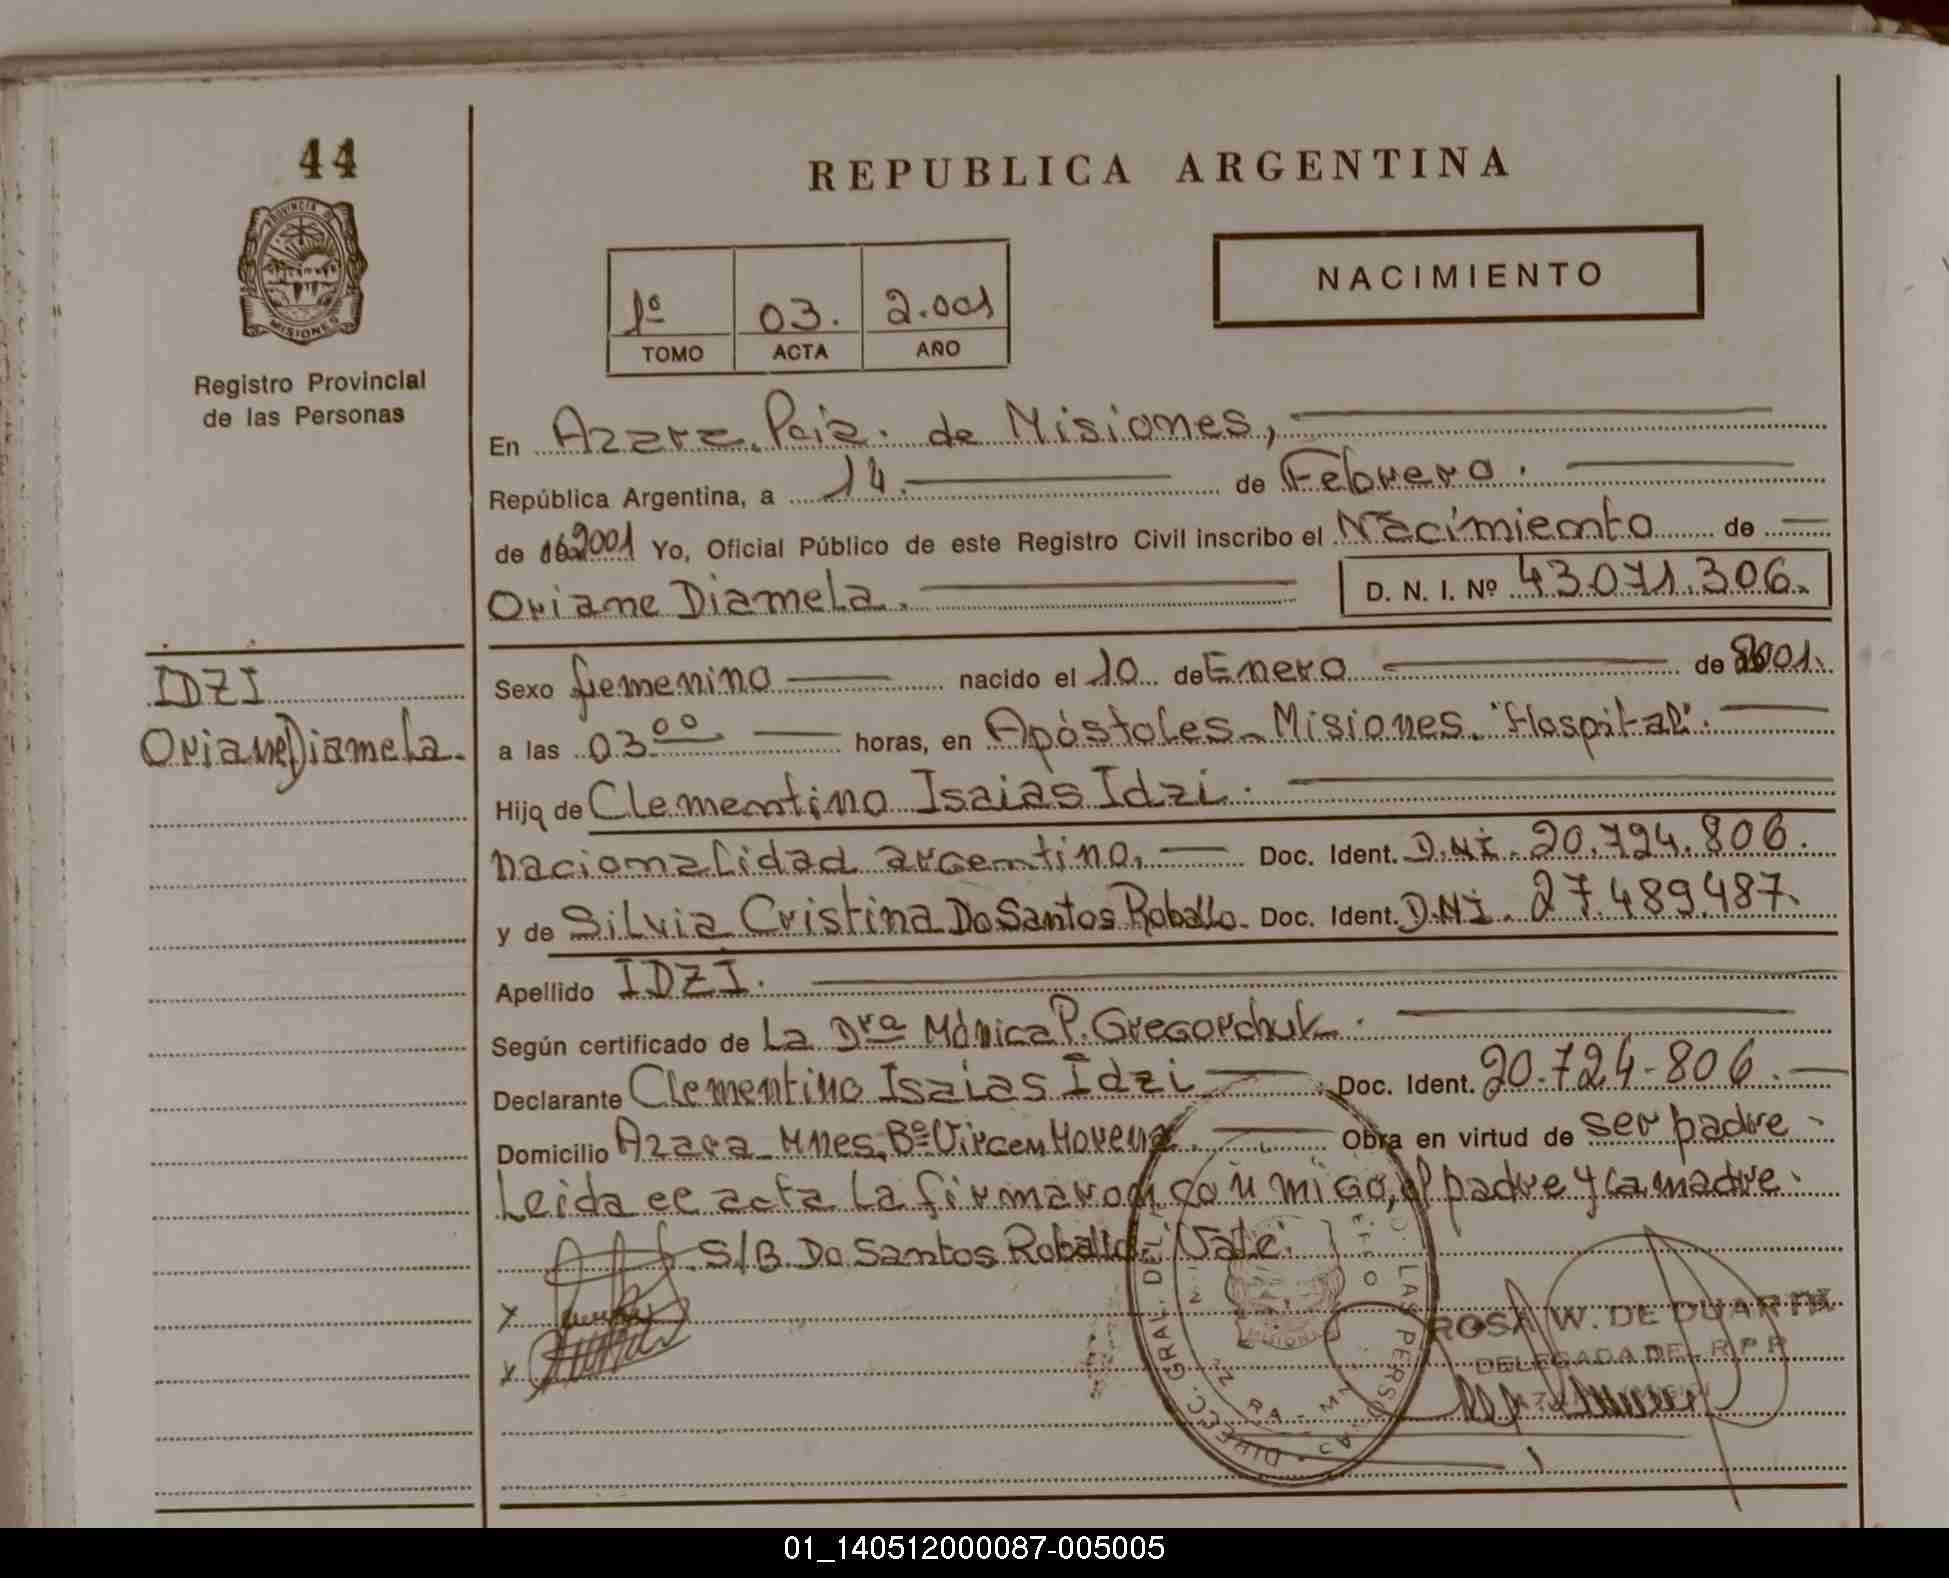 44
PROVINCIA DE
MISIONES
Registro Provincial
de las Personas
REPUBLICA ARGENTINA
1º 03. 2.001
TOMO ACTA AÑO
NACIMIENTO
En Azara. Pcia. de Misiones,
República Argentina, a 14. de Febrero.
de 2001 Yo, Oficial Público de este Registro Civil inscribo el Nacimiento de
Oriane Diamela. D. N. I. Nº 43.071.306.
IDZI
Oriane Diamela.
Sexo femenino nacido el 10 de Enero de 2001.
a las 03 00 horas, en Apóstoles - Misiones. "Hospital".
Hija de Clementino Isaias Idzi.
nacionalidad argentino. Doc. Ident. D.N.I. 20.724.806.
y de Silvia Cristina Do Santos Roballo. Doc. Ident. D.N.I. 27.489.487.
Apellido IDZI.
Según certificado de La Dra Mónica P. Gregorchuk.
Declarante Clementino Isaias Idzi Doc. Ident. 20.724-806.
Domicilio Azara - Mnes. Bº Virgen Morena. Obra en virtud de ser padre.
Leida el acta la firmaron con migo, el padre y la madre.
S/B. Do Santos Roballo. Vale.
X
X
DIRECC. GRAL. DEL LAS PERSONAS
MISIONES
ROSA W. DE DUARTE
DELEGADA DEL R P P
01_140512000087-005005